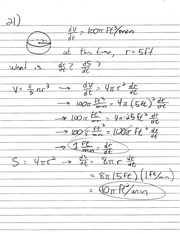 21)
dV/dt = 100π ft³/min
at this time, r = 5ft
What is dr/dt? dS/dt?
V = 4/3 πr³ → dV/dt = 4πr² dr/dt
→ 100π ft³/min = 4π(5ft)² dr/dt
→ 100π ft³/min = 4π·25ft² dr/dt
→ 100π ft³/min = 100π ft² dr/dt
→ 1 ft/min = dr/dt
S = 4πr² → dS/dt = 8πr dr/dt
= 8π(5ft)(1ft/min)
= 40π ft²/min